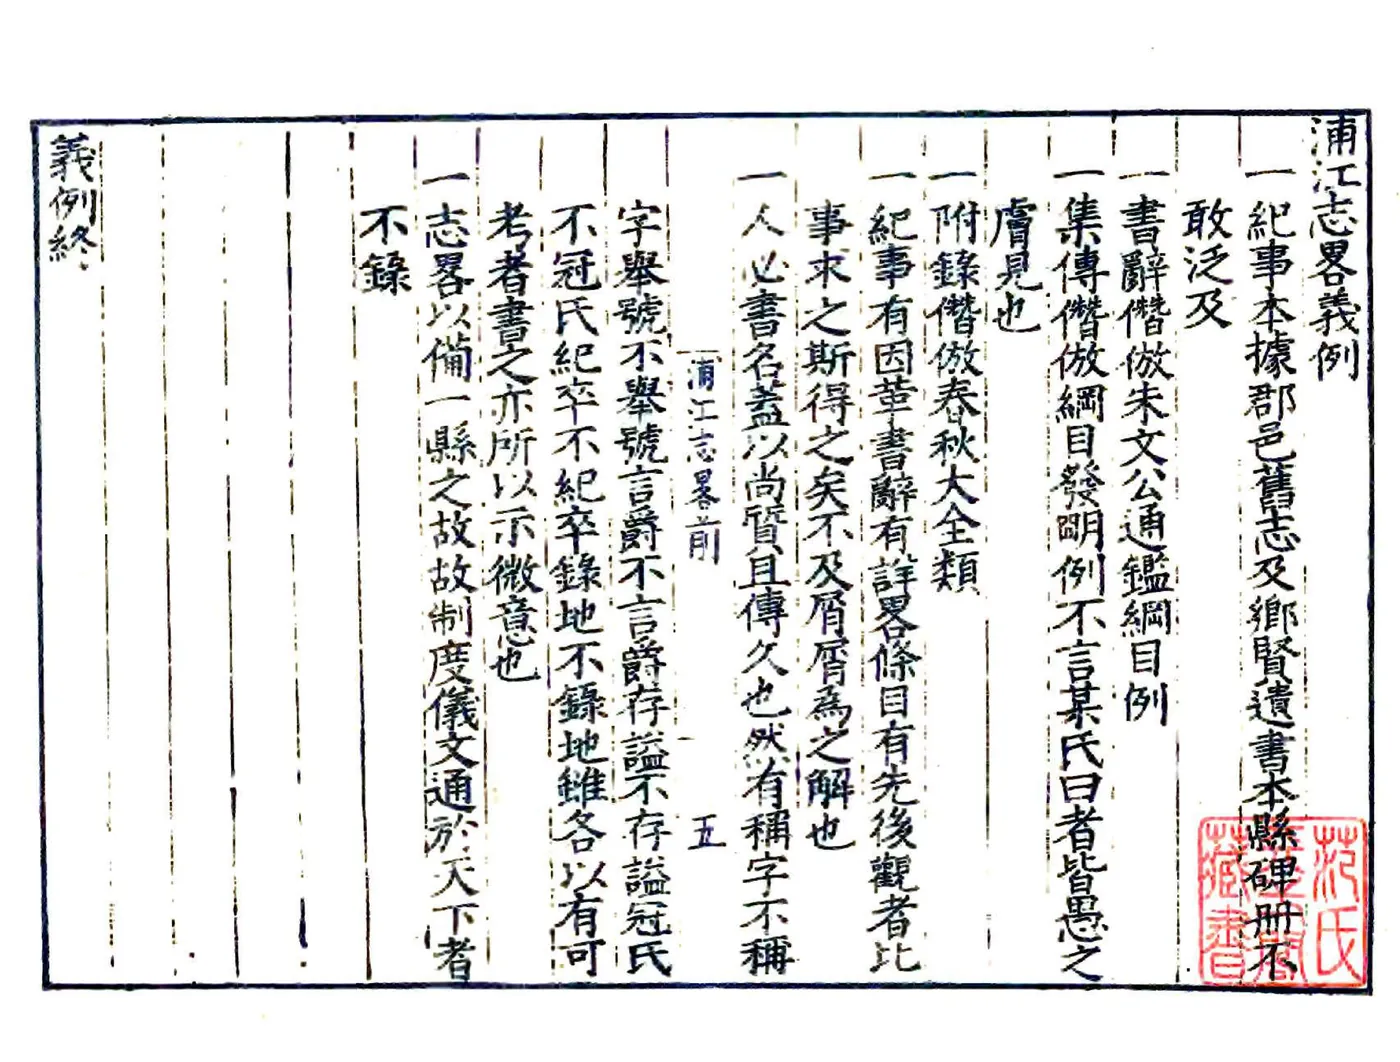 浦江志畧義例
一紀事本據郡邑舊志及鄉賢遺書本縣碑册不
敢泛及
一書辭僭倣朱文公通鑑綱目例
一集傳僭倣綱目發明例不言某氏曰者皆愚之
膚見也
一附錄僭倣春秋大全類
一紀事有因革書辭有詳畧條目有先後觀者比
事求之斯得之矣不及屑屑爲之解也
一人必書名蓋以尚質且傳久也然有稱字不稱
浦江志畧前
五
字舉號不舉號言爵不言爵存謚不存謚冠氏
不冠氏紀卒不紀卒錄地不錄地雖各以有可
考者書之亦所以示微意也
一志畧以備一縣之故故制度儀文通於天下者
不錄
義例終
范氏
藏書